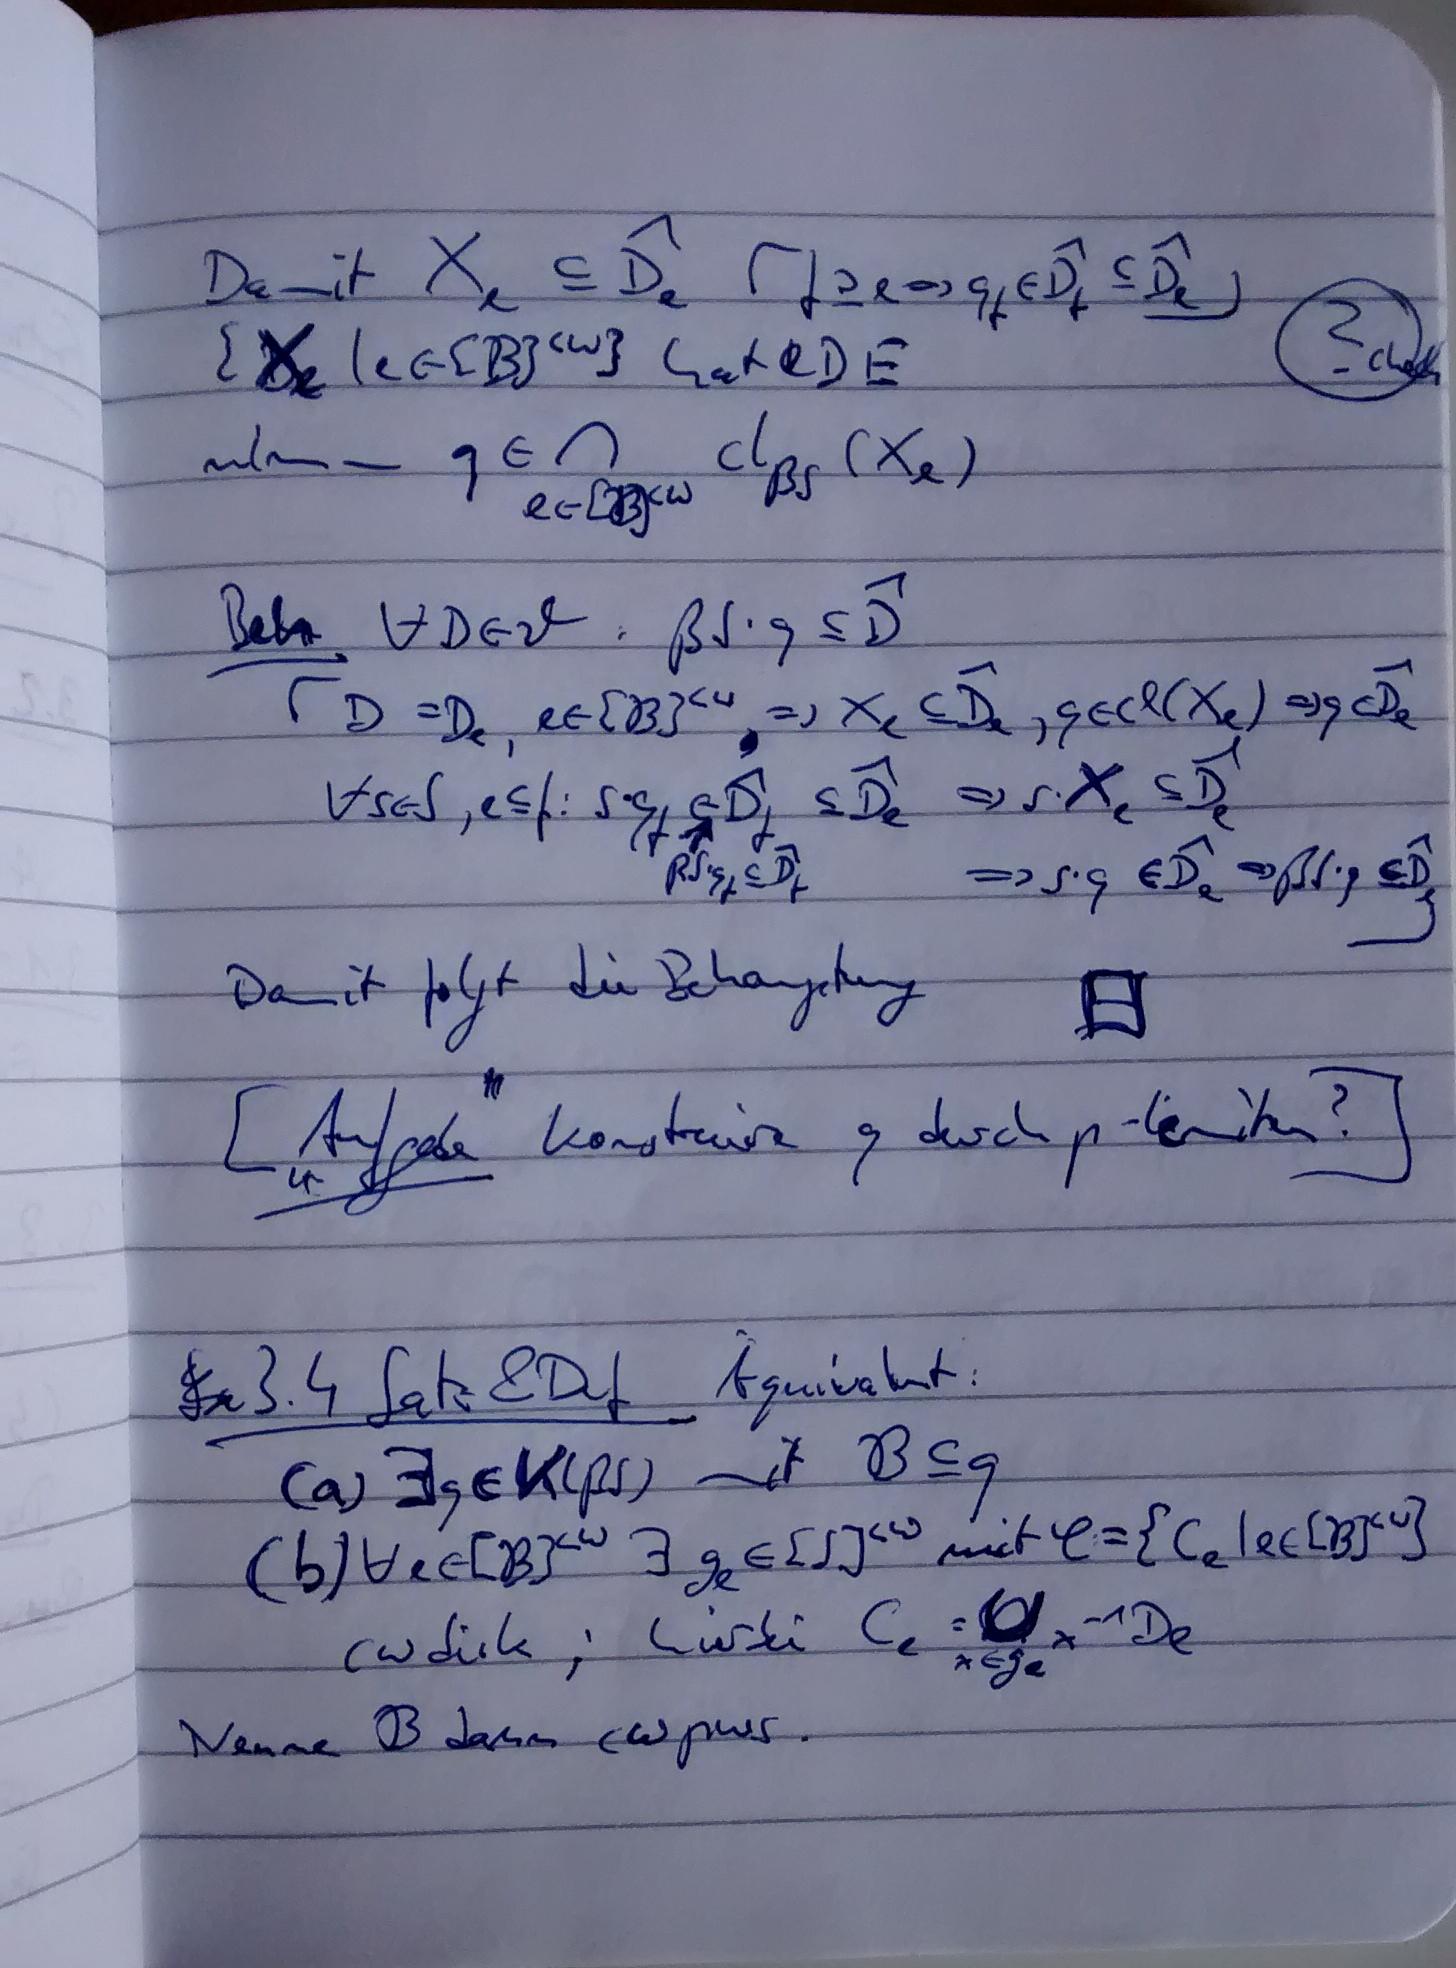 Damit X_e ⊆ D̂_e ⌈ f ⊇ e ⇒ q_f ∈ D̂_f ⊆ D̂_e ⌋
{X_e | e ∈ [B]^{<ω}} hat eDE
? check
nehme q ∈ ⋂_{e∈[B]^{<ω}} cl_{βS} (X_e)
Beh. ∀ D ∈ 𝒟 : βS·q ⊆ D̂
⌈ D = D_e, e ∈ [B]^{<ω}, ⇒ X_e ⊆ D̂_e, q ∈ cl(X_e) ⇒ q ∈ D̂_e
∀ s ∈ S, e ⊆ f : s·q_f ∈ D̂_f ⊆ D̂_e ⇒ s·X_e ⊆ D̂_e
βS·q_f ⊆ D̂_f ⇒ s·q ∈ D̂_e ⇒ βS·q ⊆ D̂ ⌋
Damit folgt die Behauptung
["Aufgabe" Konstruiere q durch p-limiten?]
3.4 Satz & Def Äquivalent:
(a) ∃ q ∈ K(βS) mit B ⊆ q
(b) ∀ e ∈ [B]^{<ω} ∃ g_e ∈ [S]^{<ω} mit 𝒞 = {C_e | e ∈ [B]^{<ω}}
cw dick ; hierbei C_e = ⋃_{x∈g_e} x^{-1} D_e
Nenne B dann cw pws.